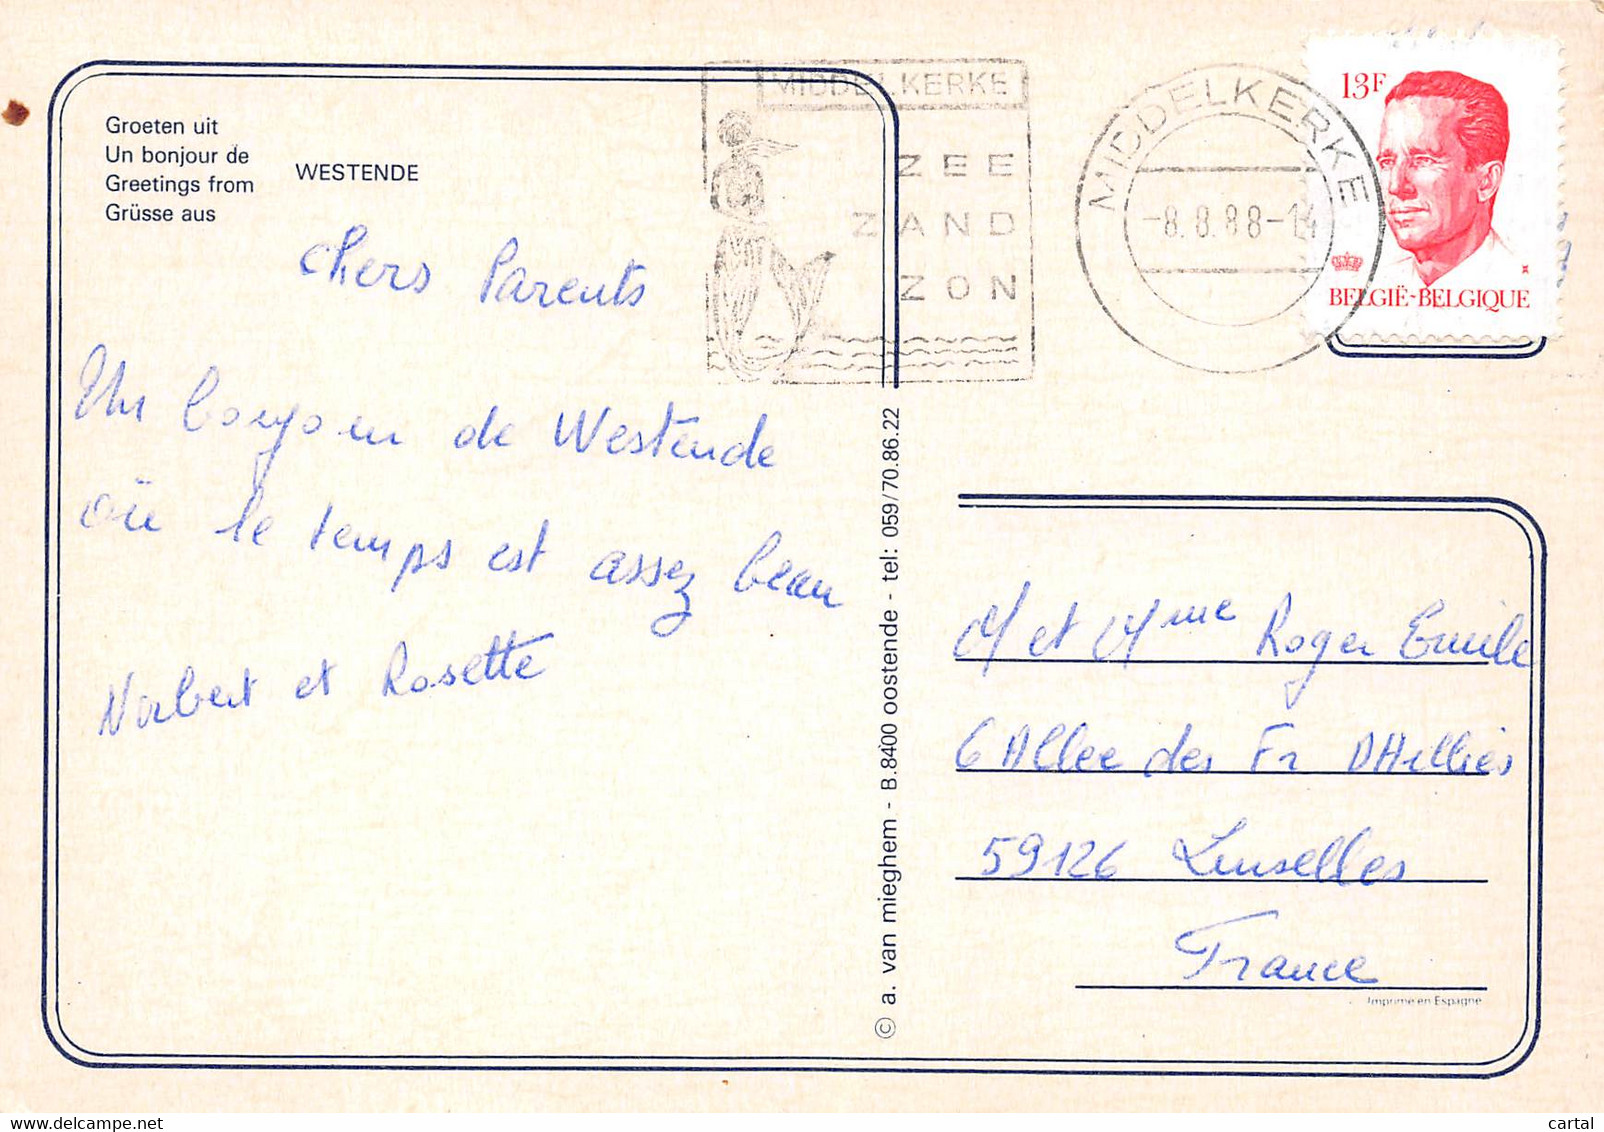 Groeten uit
Un bonjour de
Greetings from
Grüsse aus
WESTENDE
Chers Parents
Un bonjour de Westende
où le temps est assez beau
Norbert et Rosette
© a. van mieghem - B.8400 oostende - tel: 059/70.86.22
MIDDELKERKE
ZEE
ZAND
ZON
MIDDELKERKE
-8.8.88-14
13F
BELGIË-BELGIQUE
M et Mme Roger Emile
6 Allee des Fr DHellies
59126 Linselles
France
Imprimé en Espagne
cartal